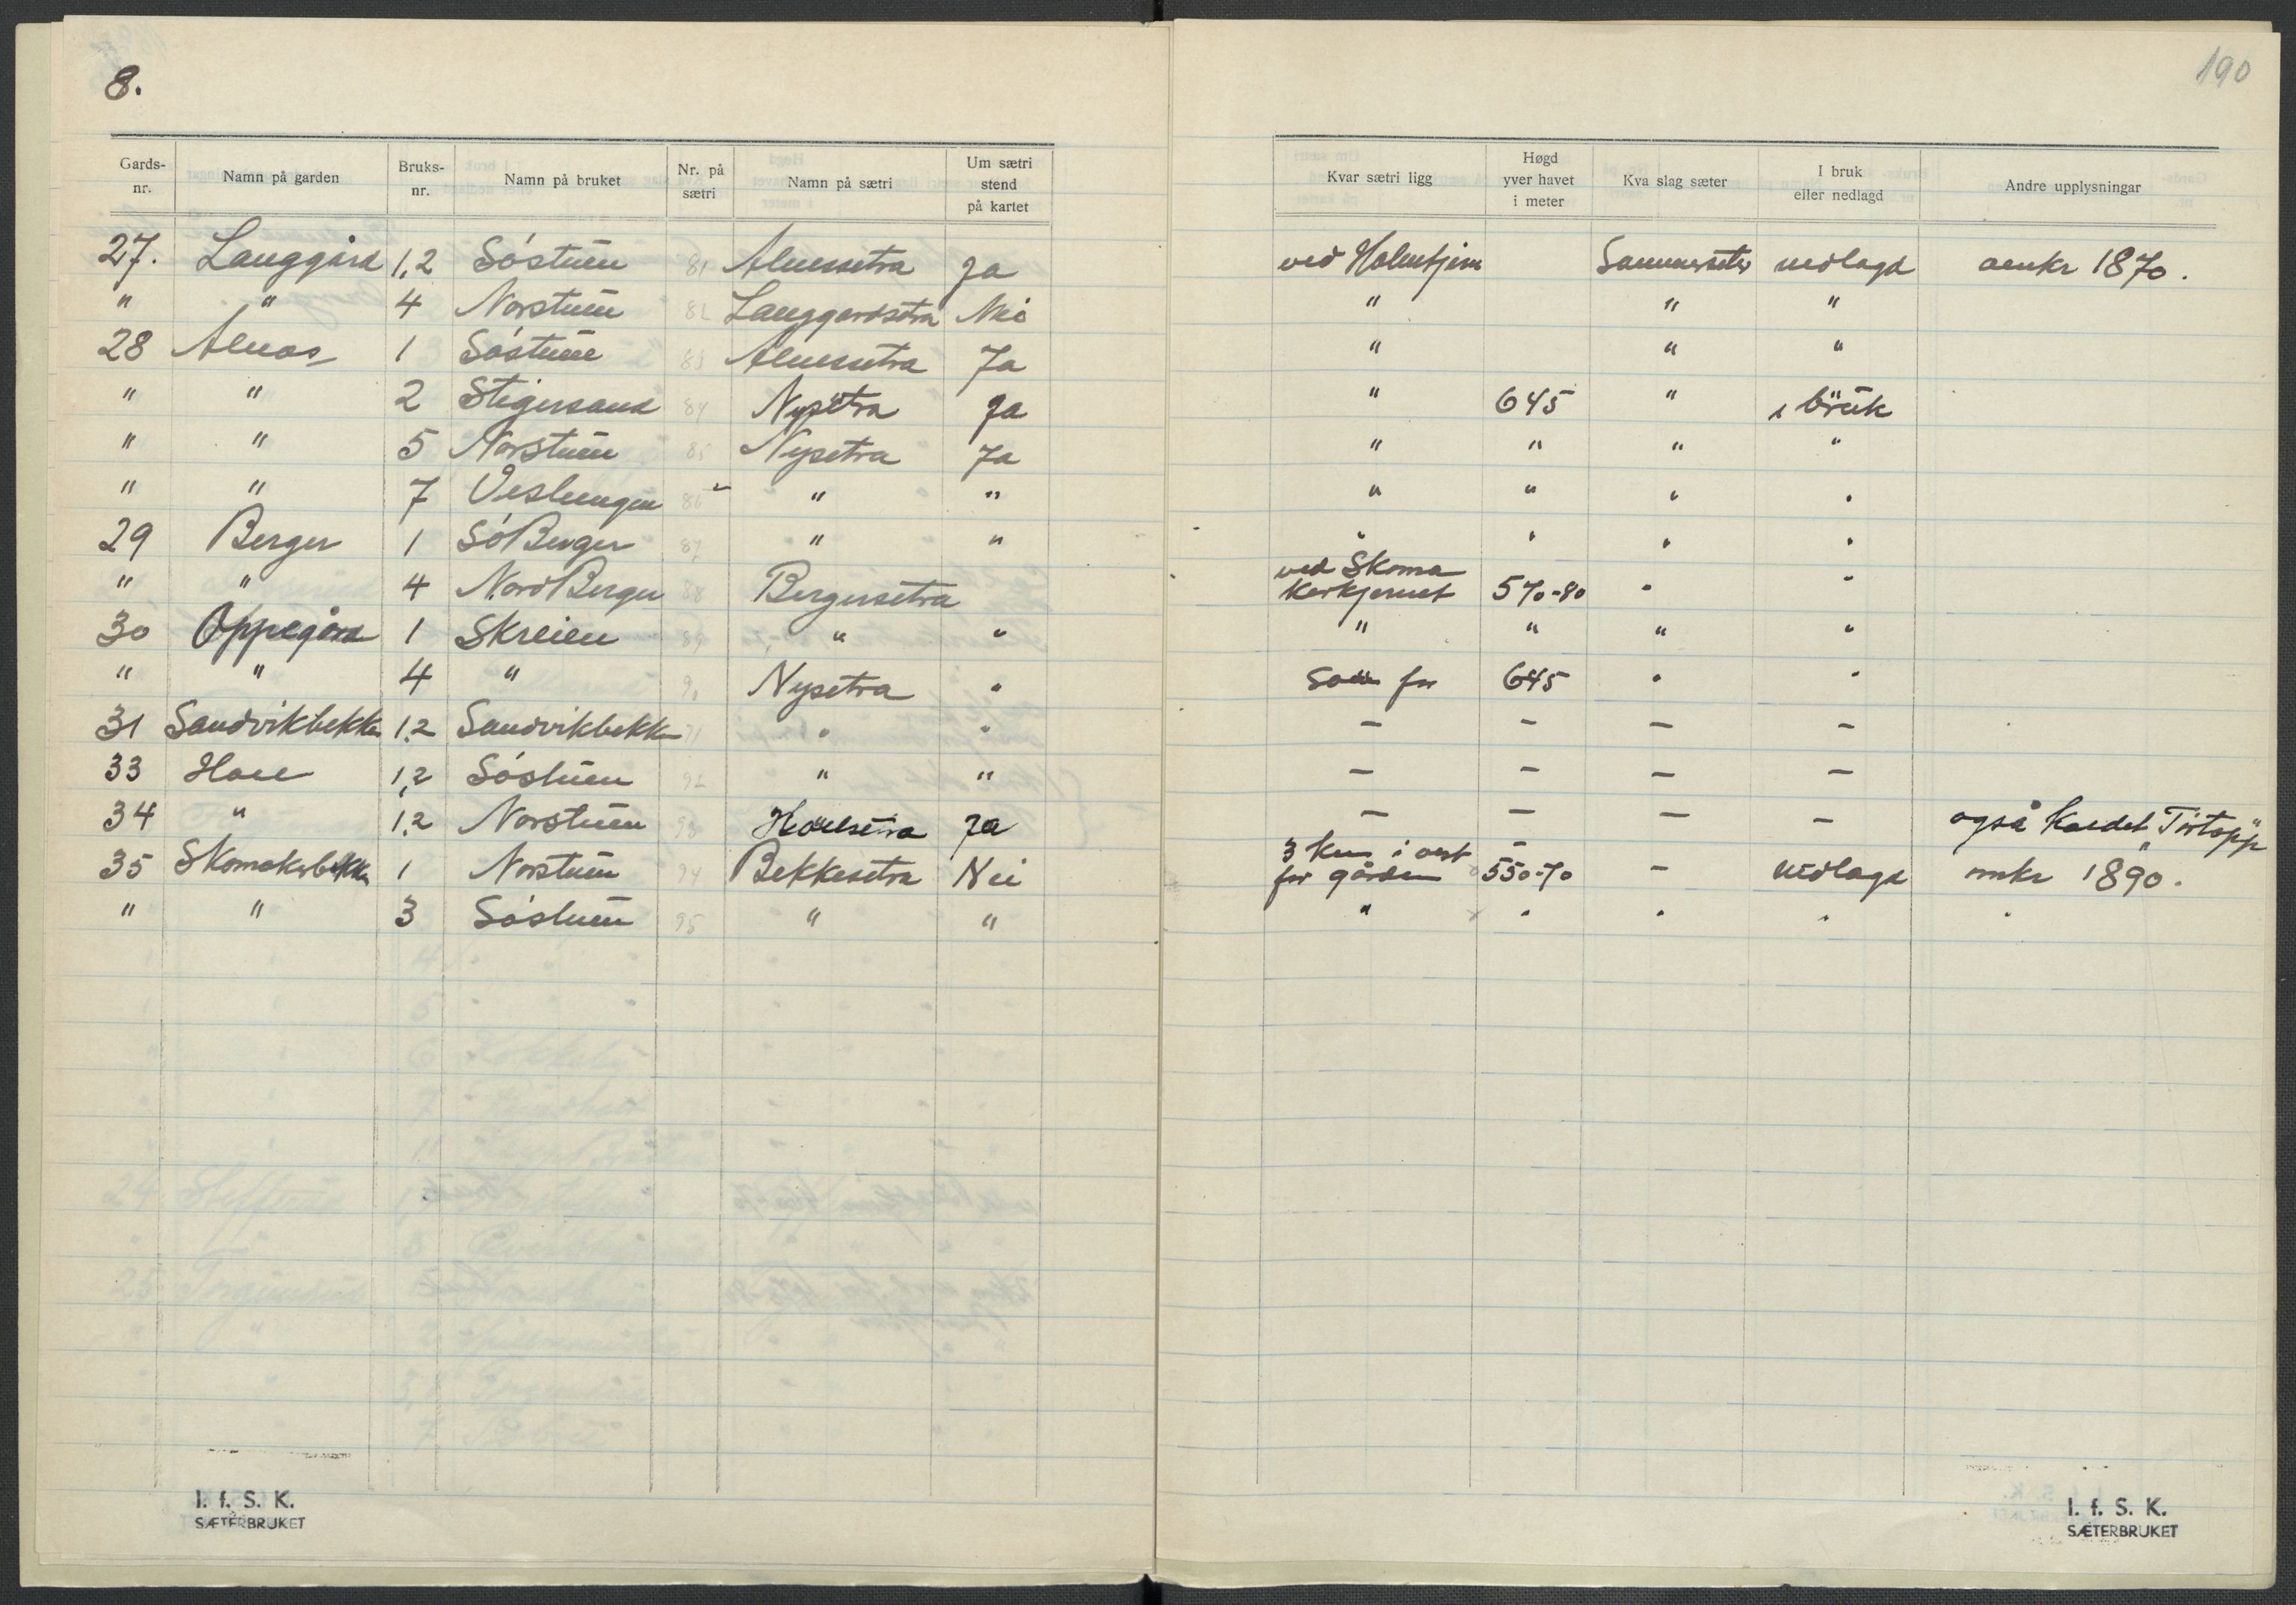 8.
190
Gards-nr. Namn på garden Bruks-nr. Namn på bruket Nr. på sætri Namn på sætri Um sætri stend på kartet Kvar sætri ligg Høgd yver havet i meter Kva slag sæter I bruk eller nedlagd Andre upplysningar
27. Langgård 1,2 Söstuen 81 Alnessetra Ja ved Holmtjern Sommerseter nedlagd omkr 1870.
" " 4 Norstuen 82 Langgardsetra Nei " " "
28 Alnæs 1 Söstuen 83 Alnessetra Ja " " "
" " 2 Stigersand 84 Nysetra Ja " 645 " i bruk
" " 5 Norstuen 85 Nysetra Ja " " " "
" " 7 Veslungen 86 " " " " " "
29 Berger 1 Sö Berger 87 " " " " " "
" " 4 Nord Berger 88 Bergersetra ved Skoma
kerkjernet 570-80 " "
30 Oppegård 1 Skreien 89 " " " " " "
" " 4 " 90 Nysetra " Som før 645 " "
31 Sandvikbekken 1,2 Sandvikbekken 91 " " — — — —
33 Hoel 1,2 Söstuen 92 " " — — — —
34 " 1,2 Norstuen 93 Hoelsetra Ja — — — — også kaldet "Törtopp"
35 Skomakerbekken 1 Norstuen 94 Bekkesetra Nei 3 km i vest
for gården 550-70 — nedlagd omkr 1890.
" " 3 Söstuen 95 " " " " " " "
I. f. S. K.
SÆTERBRUKET
I. f. S. K.
SÆTERBRUKET